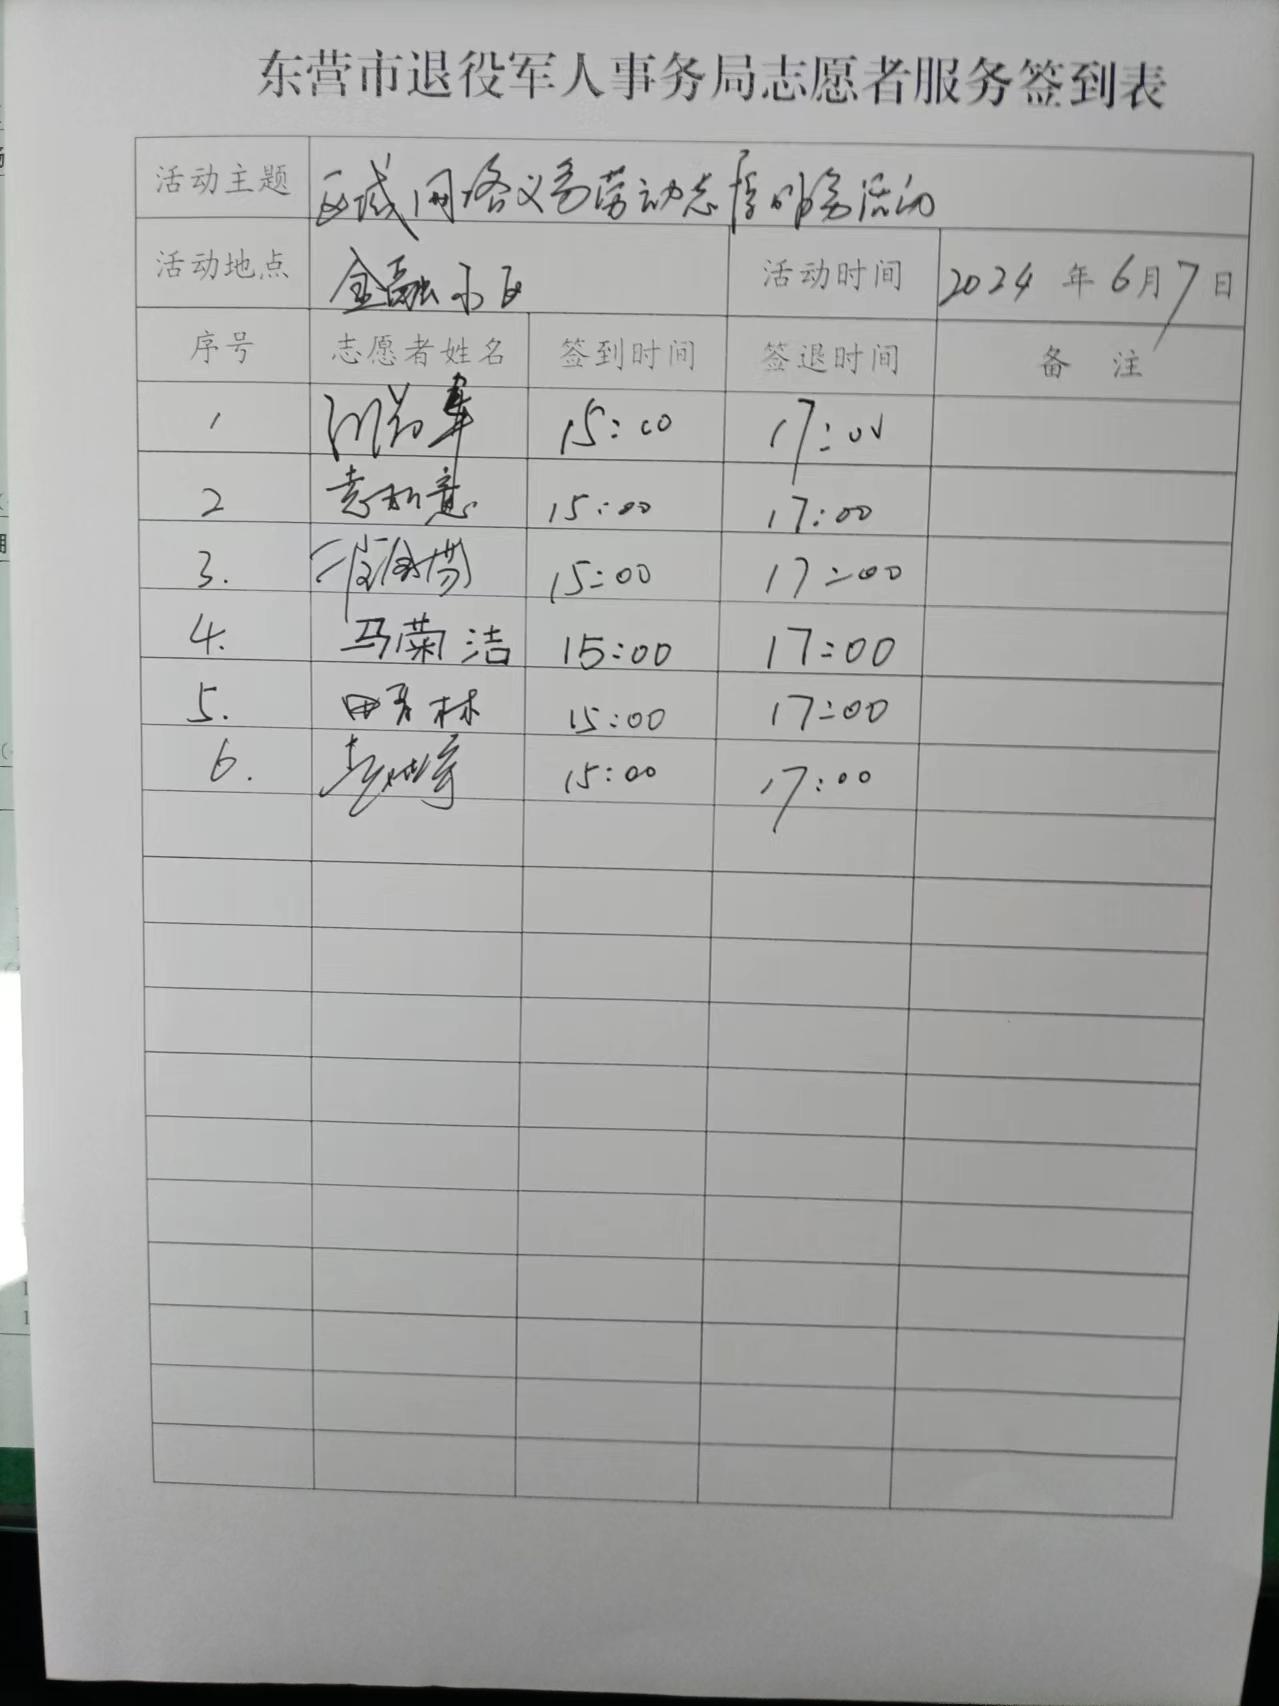 东营市退役军人事务局志愿者服务签到表
活动主题 区域网络义务劳动志愿服务活动
活动地点 金融小区 活动时间 2024年6月7日
序号 志愿者姓名 签到时间 签退时间 备 注
1 15:00 17:00
2 15:00 17:00
3. 15:00 17:00
4. 马菊洁 15:00 17:00
5. 林 15:00 17:00
6. 15:00 17:00